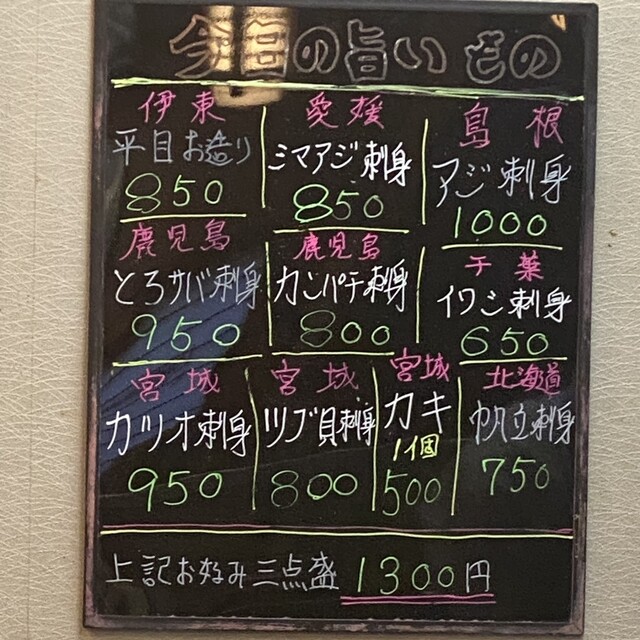 今日の旨いもの
伊東
平目お造り
850
愛媛
シマアジ刺身
850
島根
アジ刺身
1000
鹿児島
とろサバ刺身
950
鹿児島
カンパチ刺身
800
千葉
イワシ刺身
650
宮城
カツオ刺身
950
宮城
ツブ貝刺身
800
宮城
カキ
1個
500
北海道
帆立刺身
750
上記お好み三点盛 1300円